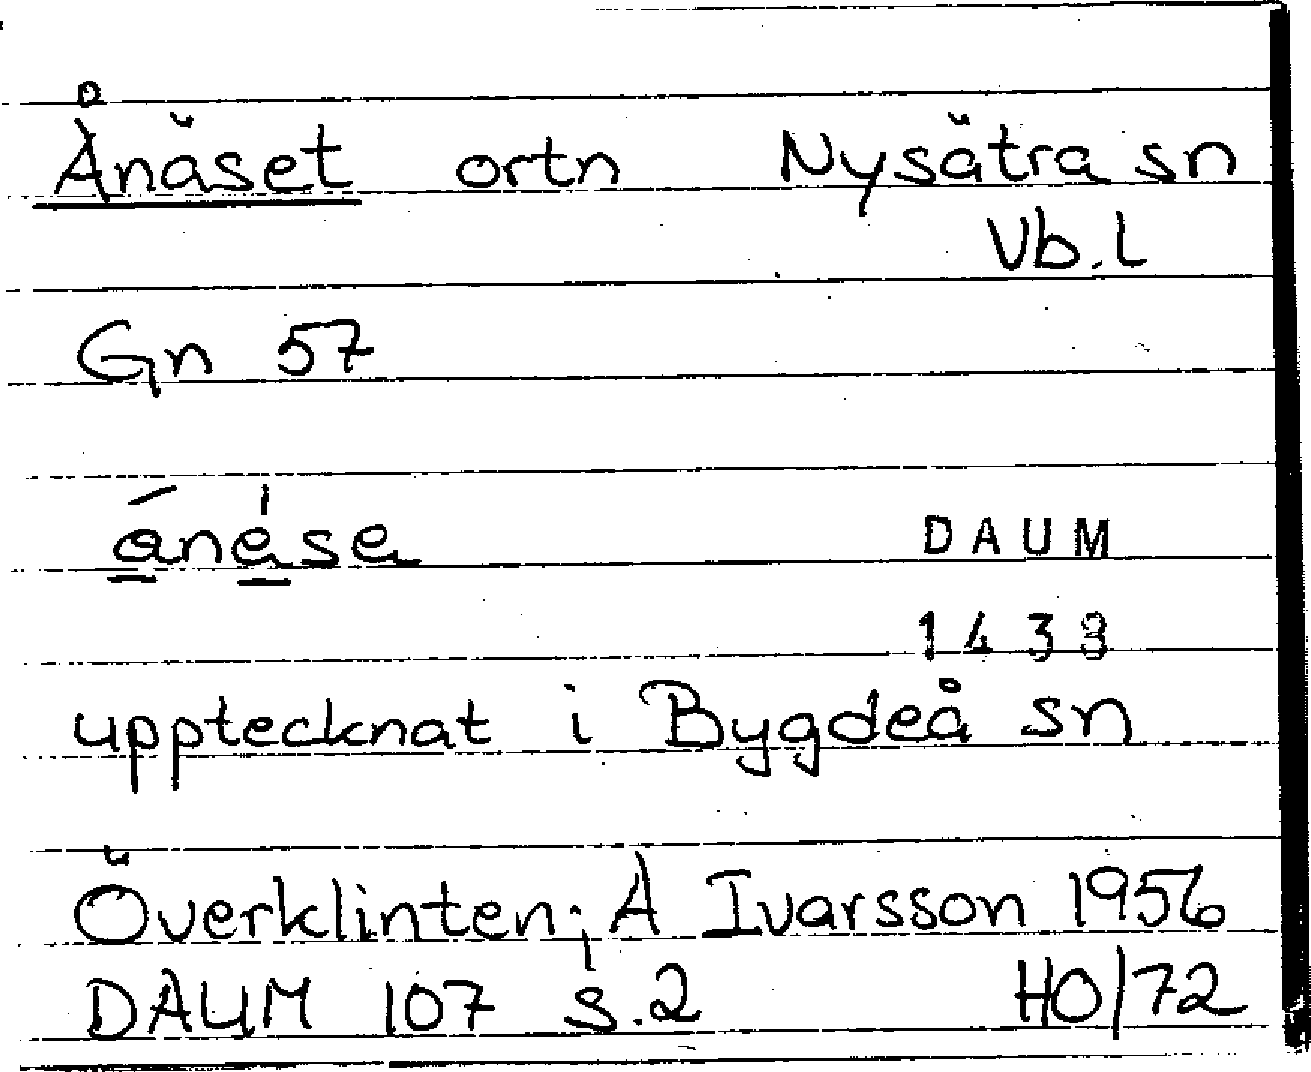 Ånäset ortn Nysätra sn
Vb.l
Gn 57
DAUM
1433
upptecknat i Bygdeå sn
Överklinten; A Ivarsson 1956
DAUM 107 s.2 HO/72